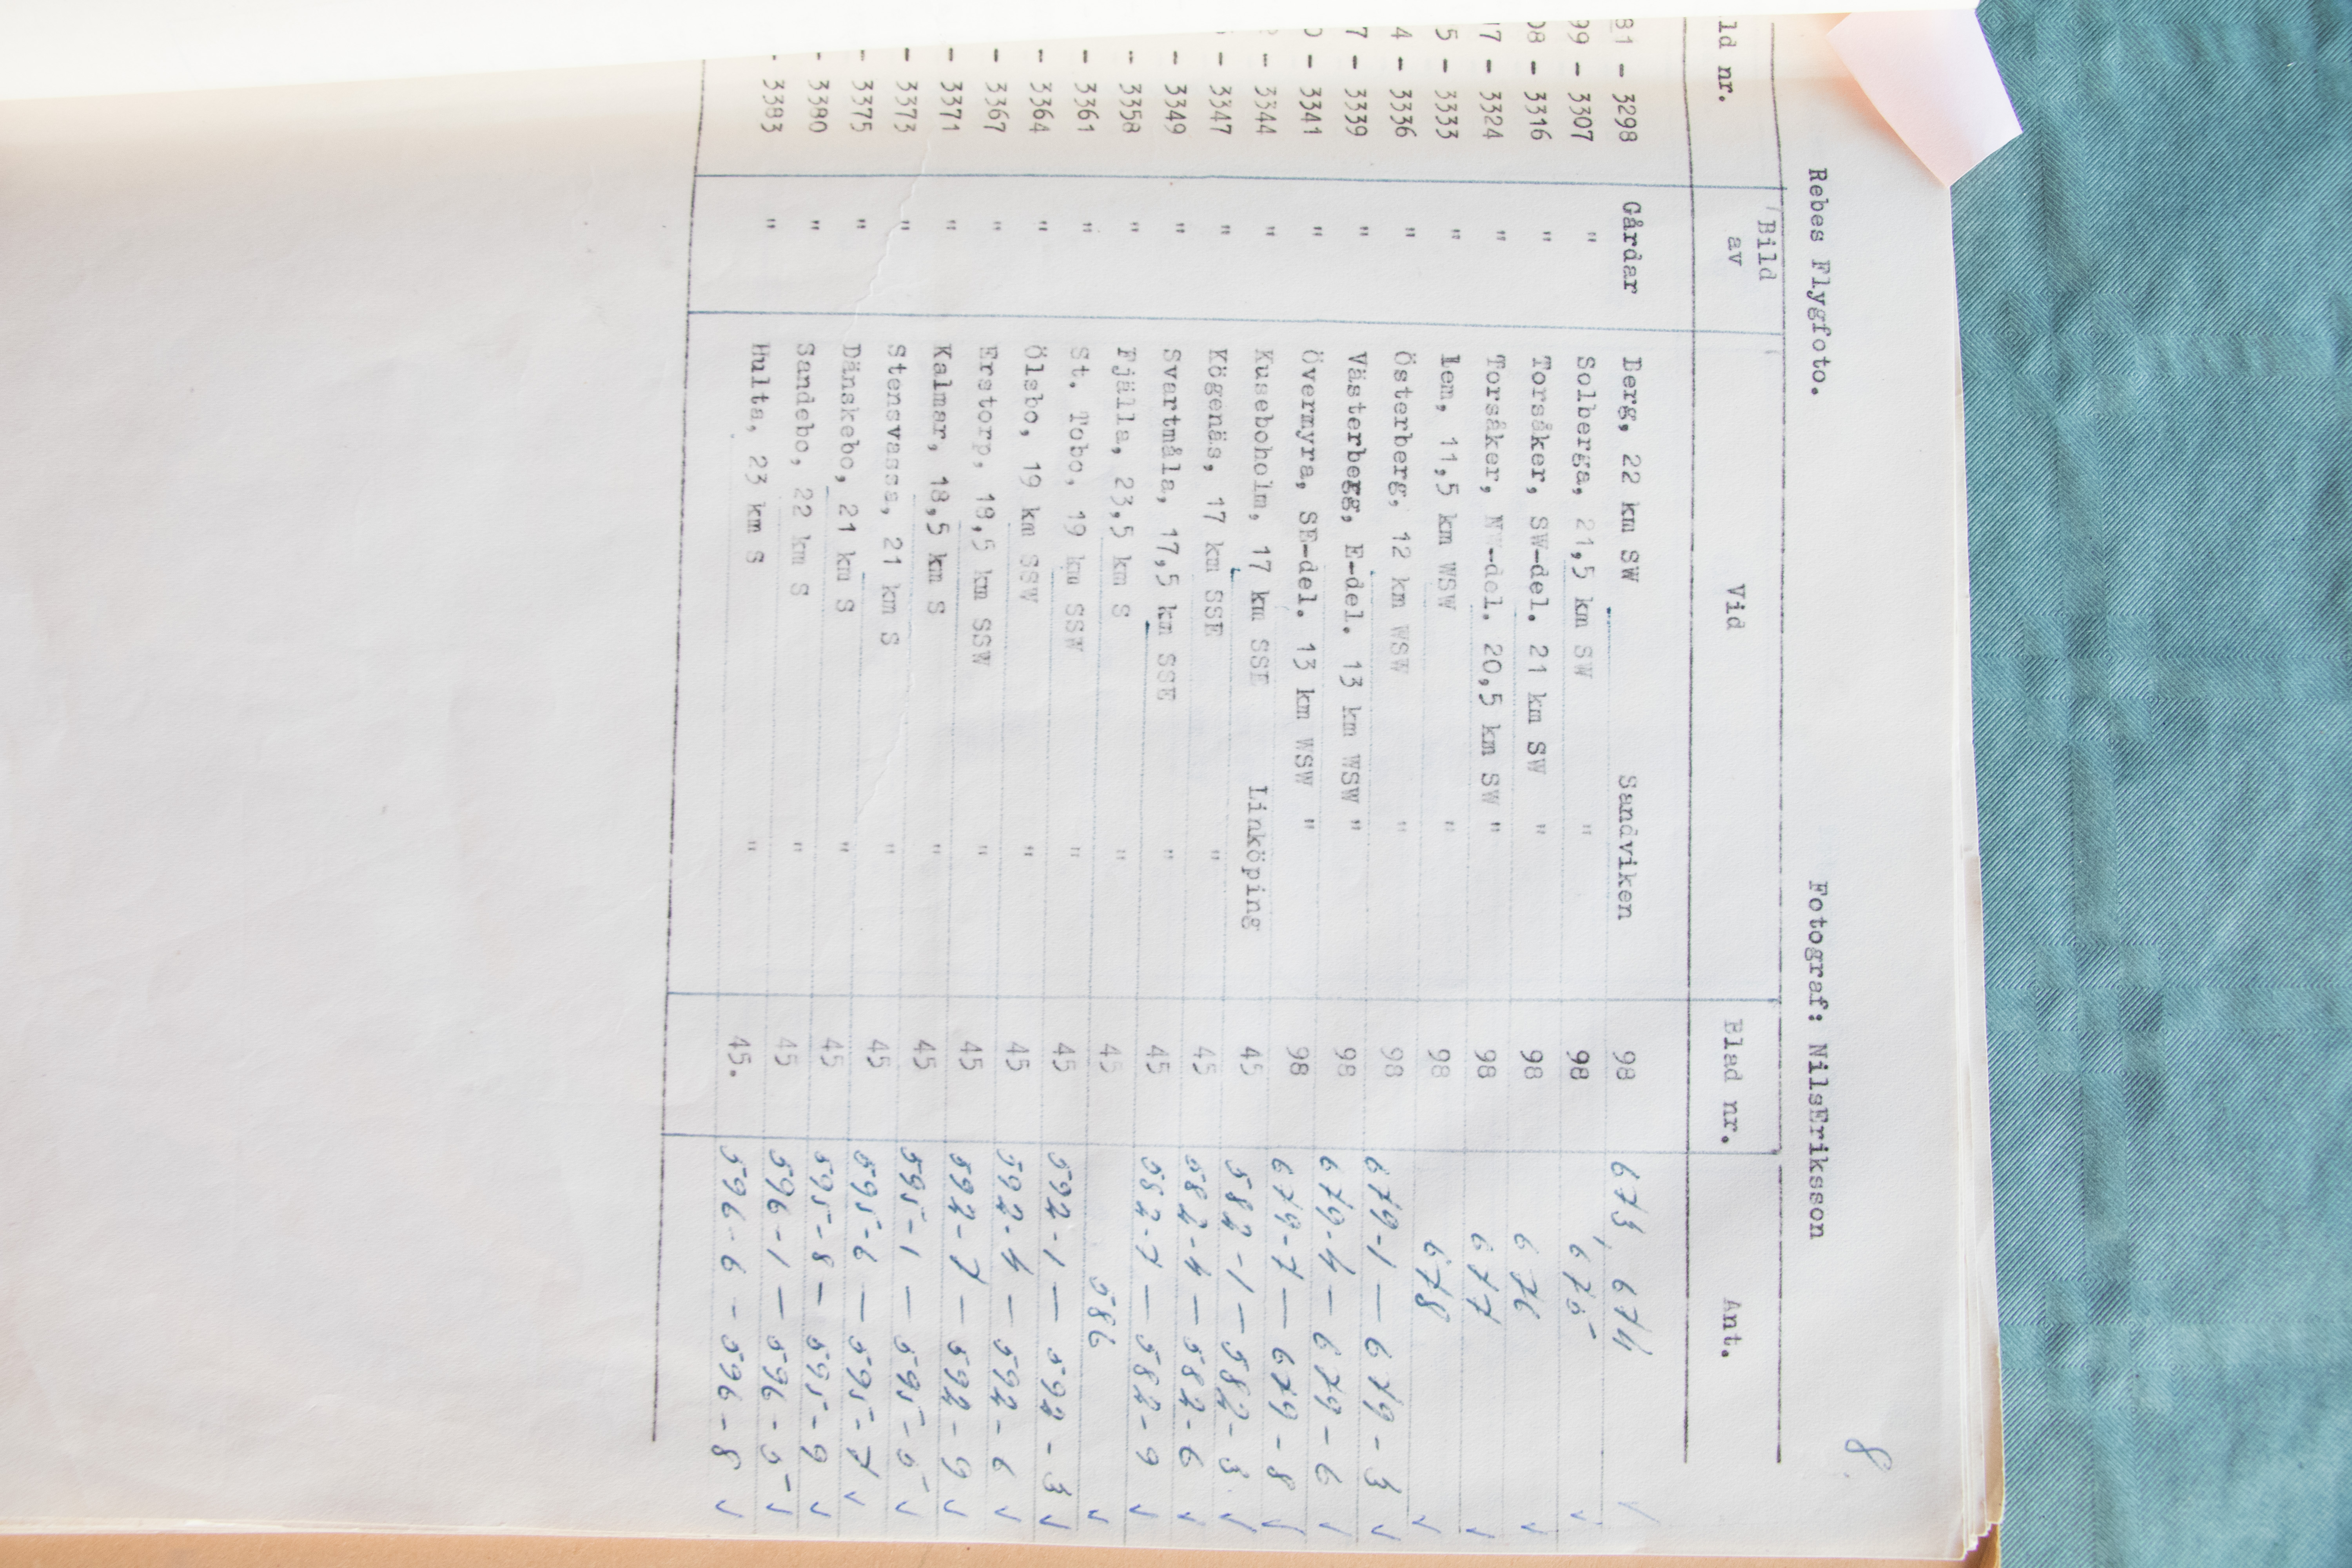 8.
Rebes Flygfoto. Fotograf: NilsEriksson
ld nr. Bild av Vid Blad nr. Ant.
81 - 3298 Gårdar Berg, 22 km SW Sandviken 98 673, 674
99 - 3307 " Solberga, 21,5 km SW " 98 675
08 - 3316 " Torsåker, SW-del. 21 km SW " 98 676
17 - 3324 " Torsåker, NW-del. 20,5 km SW " 98 677
5 - 3333 " Lem, 11,5 km WSW " 98 678
4 - 3336 " Österberg, 12 km WSW " 98 679-1 — 679-3
7 - 3339 " Västerberg, E-del. 13 km WSW " 98 679-4 — 679-6
- 3341 " Övermyra, SE-del. 13 km WSW " 98 679-7 — 679-8
- 3344 " Kuseboholm, 17 km SSE Linköping 45 582-1 — 582-3
- 3347 " Kögenäs, 17 km SSE " 45 582-4 — 582-6
- 3349 " Svartmåla, 17,5 km SSE " 45 582-7 — 582-9
- 3358 " Fjälla, 23,5 km S " 45 586
- 3361 " St. Tobo, 19 km SSW " 45 592-1 — 592-3
- 3364 " Ölsbo, 19 km SSW " 45 592-4 — 592-6
- 3367 " Erstorp, 18,5 km SSW " 45 592-7 — 592-9
- 3371 " Kalmar, 18,5 km S " 45 595-1 — 595-5
- 3373 " Stensvassa, 21 km S " 45 595-6 — 595-7
- 3375 " Dänskebo, 21 km S " 45 595-8 — 595-9
- 3380 " Sandebo, 22 km S " 45 596-1 — 596-5
- 3383 " Hulta, 23 km S " 45. 596-6 - 596-8